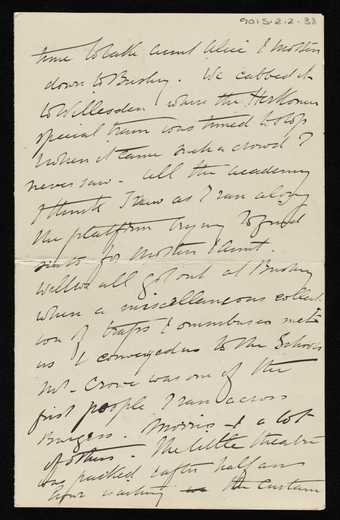 9015.2.2.33
time to take Aunt Alice & Morten
down to Bushey. We cabbed it
to Willesden where the Herkomer
special train was timed to stop
When it came such a crowd I
never saw. All the academy
I think I saw as I ran along
the platform trying to find
seats for Morten & Aunt.
Well we all got out at Bushey
where a miscellaneous collect
ion of traps & omnibuses met
us & conveyed us to the Schools
Mr. Crowe was one of the
first people I ran across
Burgess. Morris & a lot
of others. The little theatre
was packed & after half an
hour waiting the curtain